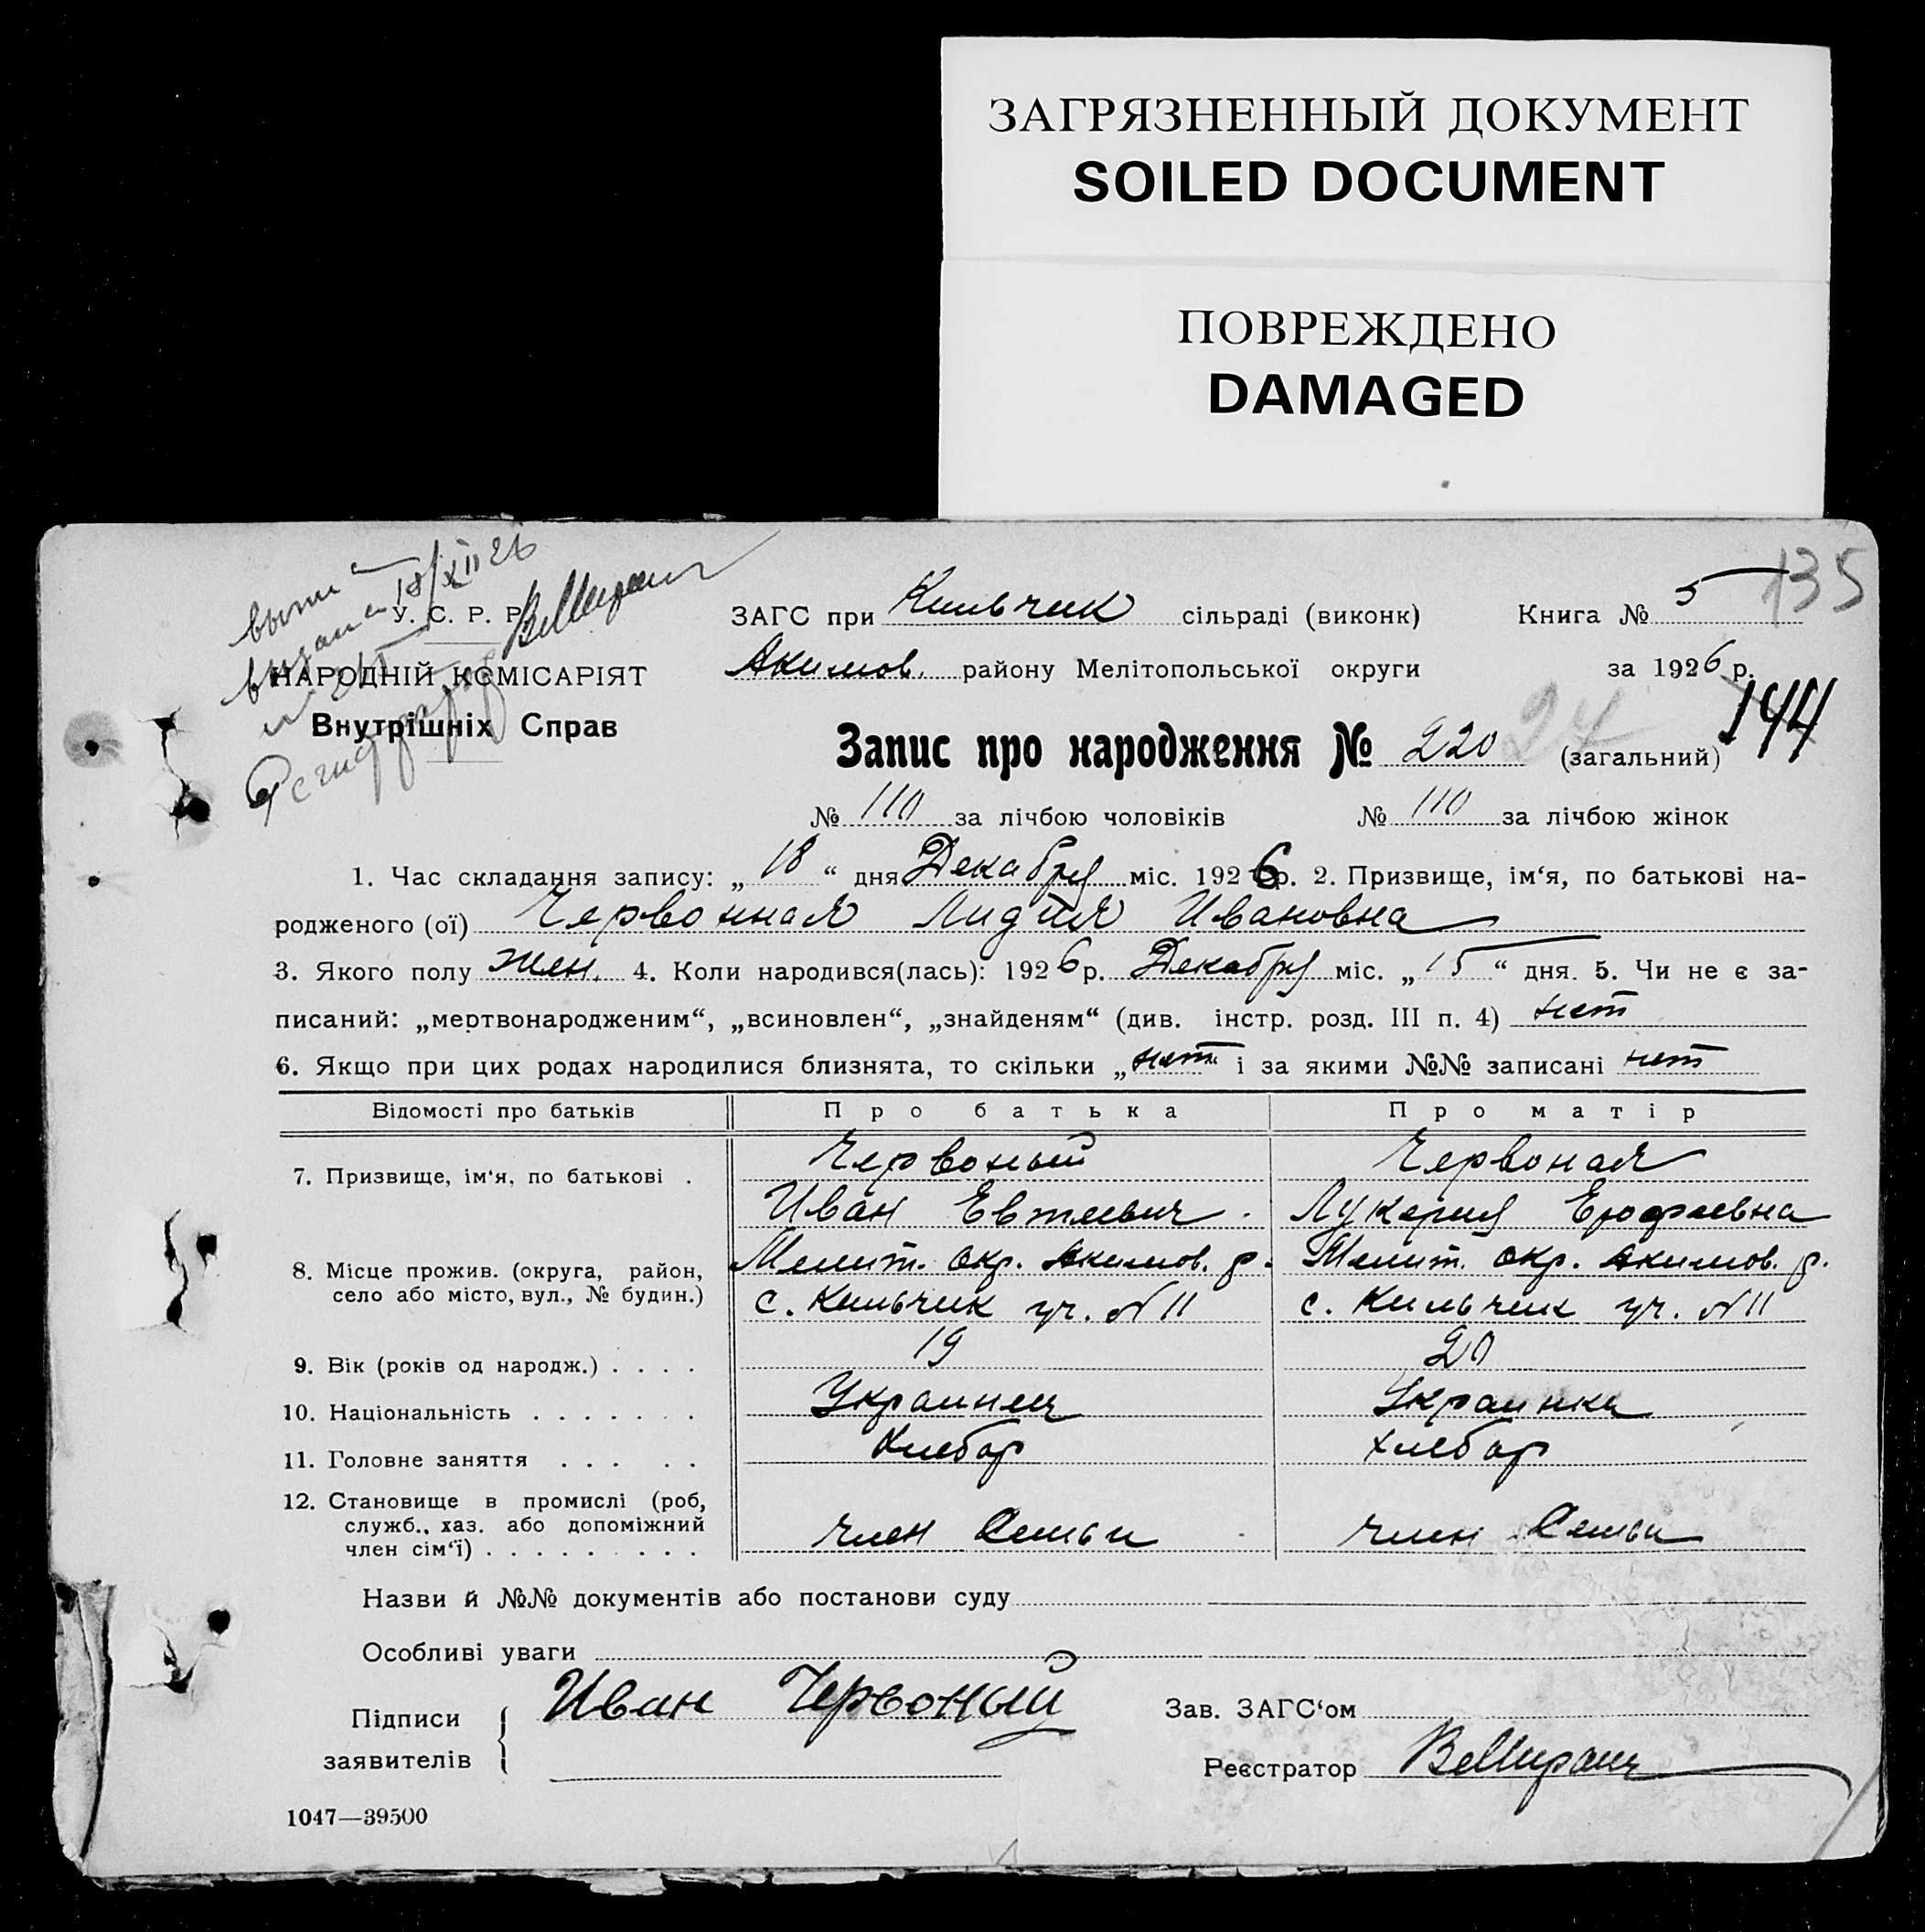 ЗАГРЯЗНЕННЫЙ ДОКУМЕНТ
SOILED DOCUMENT
ПОВРЕЖДЕНО
DAMAGED
135
18/XII 26
У. С. Р. Р.
НАРОДНІЙ КОМІСАРІЯТ
Внутрішніх Справ
ЗАГС при Кильчик сільраді (виконк) Книга № 5
Акимов. району Мелітопольської округи за 1926 р.
144
Запис про народження № 220 24 (загальний)
№ 110 за лічбою чоловіків № 110 за лічбою жінок
1. Час складання запису: „18“ дня Декабря міс. 1926 р. 2. Призвище, ім‘я, по батькові на-
родженого (ої) Червонная Лидия Ивановна
3. Якого полу жен. 4. Коли народився(лась): 1926 р. Декабря міс. „15“ дня. 5. Чи не є за-
писаний: „мертвонародженим“, „всиновлен“, „знайденям“ (див. інстр. розд. III п. 4) нет
6. Якщо при цих родах народилися близнята, то скільки „нет“ і за якими №№ записані нет
Відомості про батьків Про батька Про матір
7. Призвище, ім‘я, по батькові . Червоный Червоная
Иван Евтеевич. Лукерия Ерофеевна
8. Місце прожив. (округа, район, Мелит. окр. Акимов. р. Мелит. окр. Акимов. р.
село або місто, вул., № будин.) с. Кильчик уч. N 11 с. Кильчик уч. N 11
9. Вік (років од народж.) . . . . 19 20
10. Національність . . . . . . . Украинец Украинка
11. Головне заняття . . . . . Хлебор Хлебор
12. Становище в промислі (роб,
служб., хаз. або допоміжний член Семьи член Семьи
член сім‘ї) . . . . . . . . .
Назви й №№ документів або постанови суду
Особливі уваги
Підписи Иван Червоный Зав. ЗАГС‘ом
заявителів Реєстратор
1047—39500